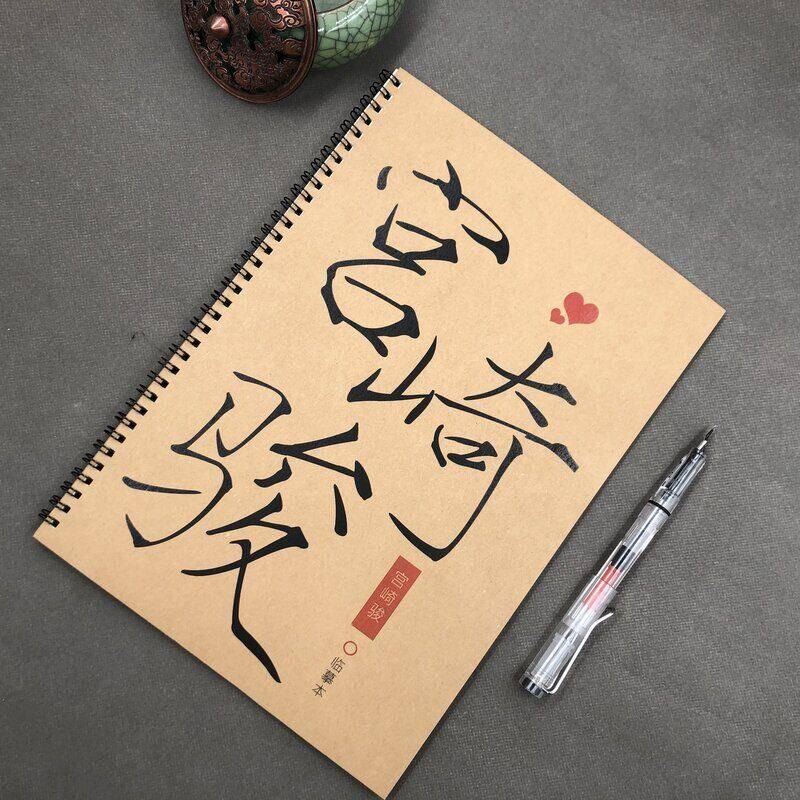 宫崎
骏
宫崎骏
临摹本